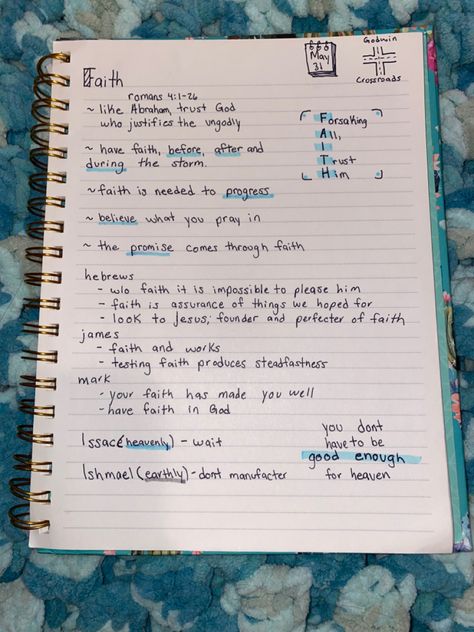 Faith
Godwin
Crossroads
May
31
romans 4:1-26
~ like Abraham, trust God
who justifies the ungodly
Forsaking
All,
I
Trust
Him
~ have faith, before, after and
during the storm.
~ faith is needed to progress
~ believe what you pray in
~ the promise comes through faith
hebrews
- w/o faith it is impossible to please him
- faith is assurance of things we hoped for
- look to Jesus; founder and perfecter of faith
james
- faith and works
- testing faith produces steadfastness
mark
- your faith has made you well
- have faith in God
Issac (heavenly) - wait
Ishmael (earthly) - dont manufacter
you dont
have to be
good enough
for heaven